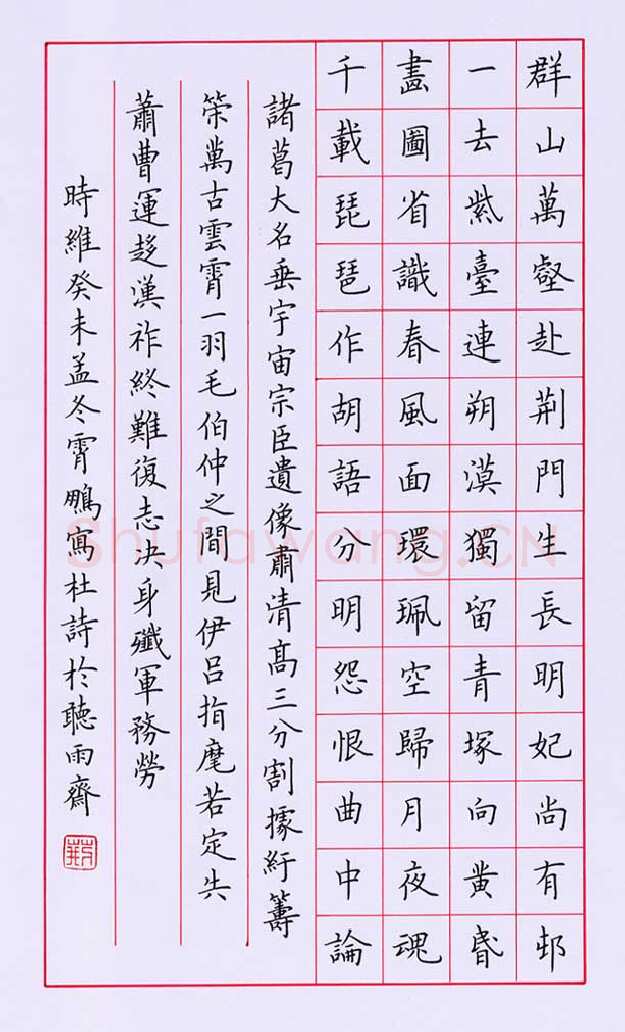 群山萬壑赴荆門生長明妃尚有邨
一去紫臺連朔漠獨留青塚向黄昏
畫圖省識春風面環珮空歸月夜魂
千載琵琶作胡語分明怨恨曲中論
諸葛大名垂宇宙宗臣遺像肅清高三分割據紆籌
策萬古雲霄一羽毛伯仲之間見伊吕指麾若定失
蕭曹運迻漢祚終難復志决身殲軍務勞
時維癸未孟冬霄鵬寫杜詩於聽雨齋
Shufawang.CN